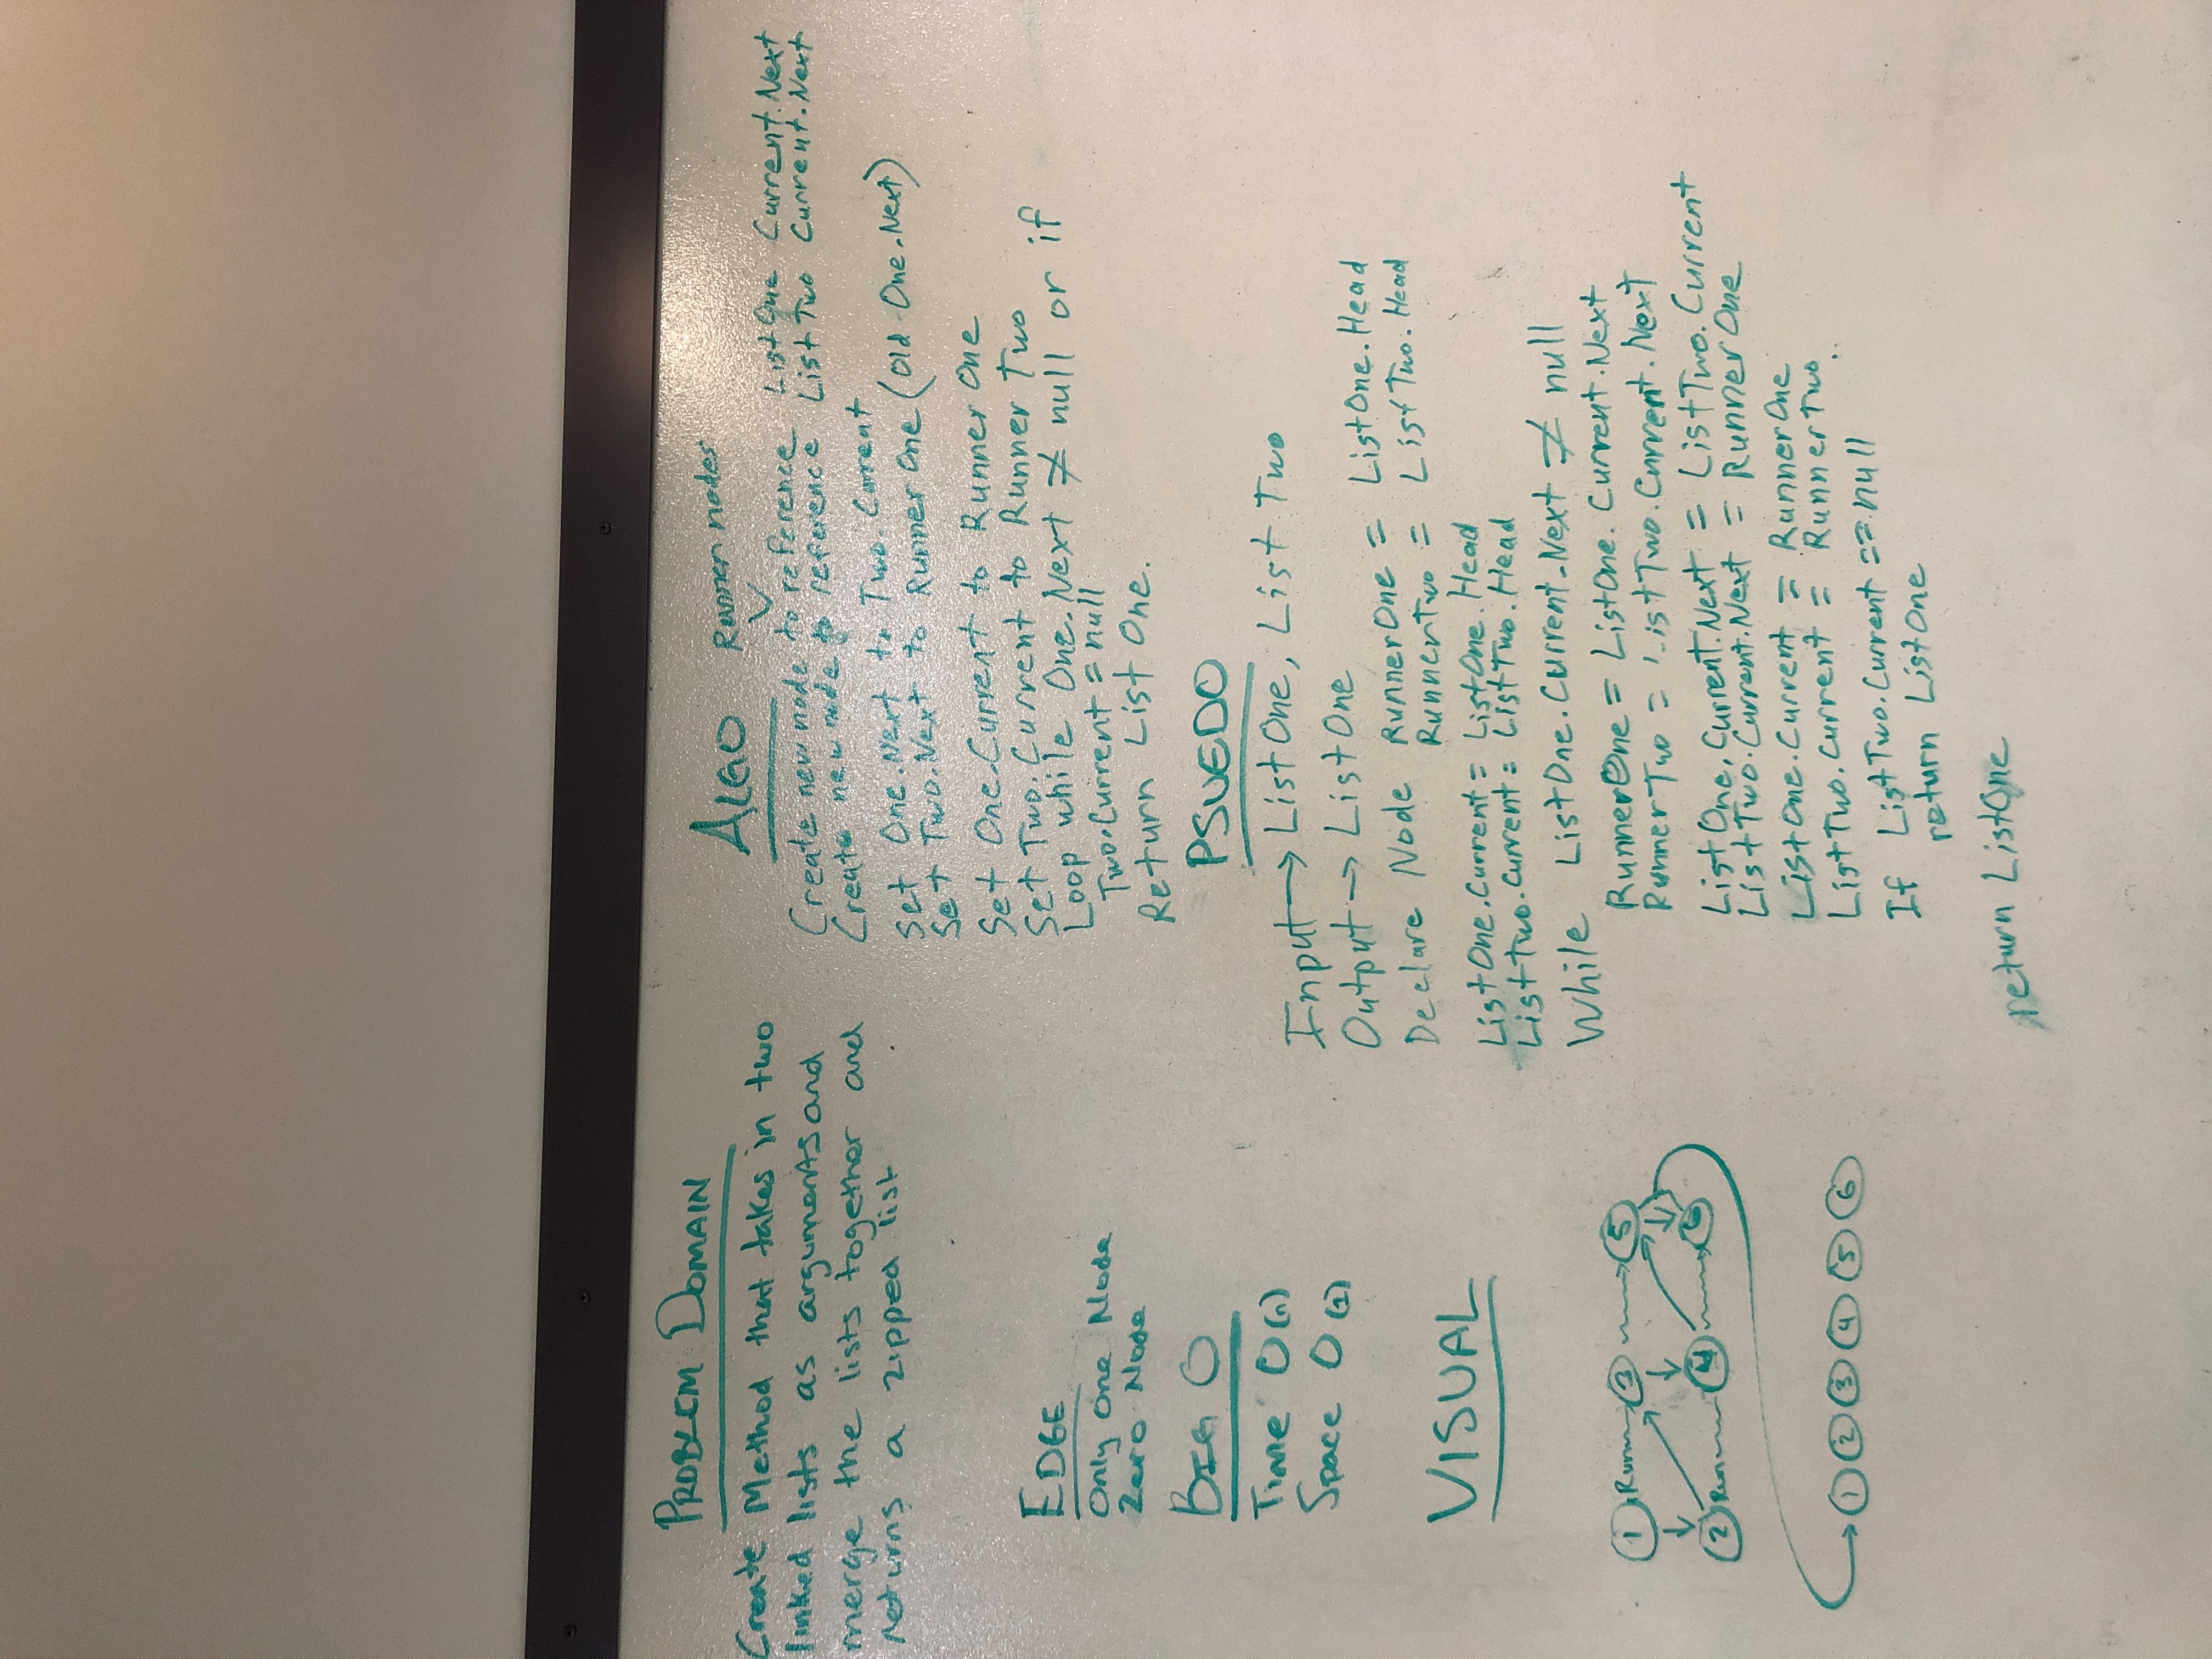 PROBLEM DOMAIN
Create Method that takes in two
linked lists as arguments and
merge the lists together and
returns a zipped list.
EDGE
Only One Node
Zero Node
BIG O
Time O(n)
Space O(1)
VISUAL
1 Runner 3 5
2 Runner 4 6
1 2 3 4 5 6
ALGO
Runner nodes
Create new node to reference ListOne Current.Next
Create new node to reference List Two Current.Next
Set One.Next to Two.Current
Set Two.Next to Runner One (Old One.Next)
Set One.Current to Runner One
Set Two.Current to Runner Two
Loop while One.Next ≠ null or if
Two.Current = null
Return List One.
PSUEDO
Input → ListOne, List Two
Output → ListOne
Declare Node RunnerOne = ListOne.Head
RunnerTwo = ListTwo.Head
ListOne.Current = ListOne.Head
ListTwo.Current = ListTwo.Head
While ListOne.Current.Next ≠ null
RunnerOne = ListOne.Current.Next
RunnerTwo = ListTwo.Current.Next
ListOne.Current.Next = ListTwo.Current
ListTwo.Current.Next = RunnerOne
ListOne.Current = RunnerOne
ListTwo.Current = RunnerTwo
If ListTwo.Current == null
return ListOne
return ListOne